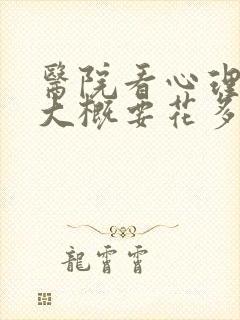 醫院看心理
大概要花多
龍霄霄